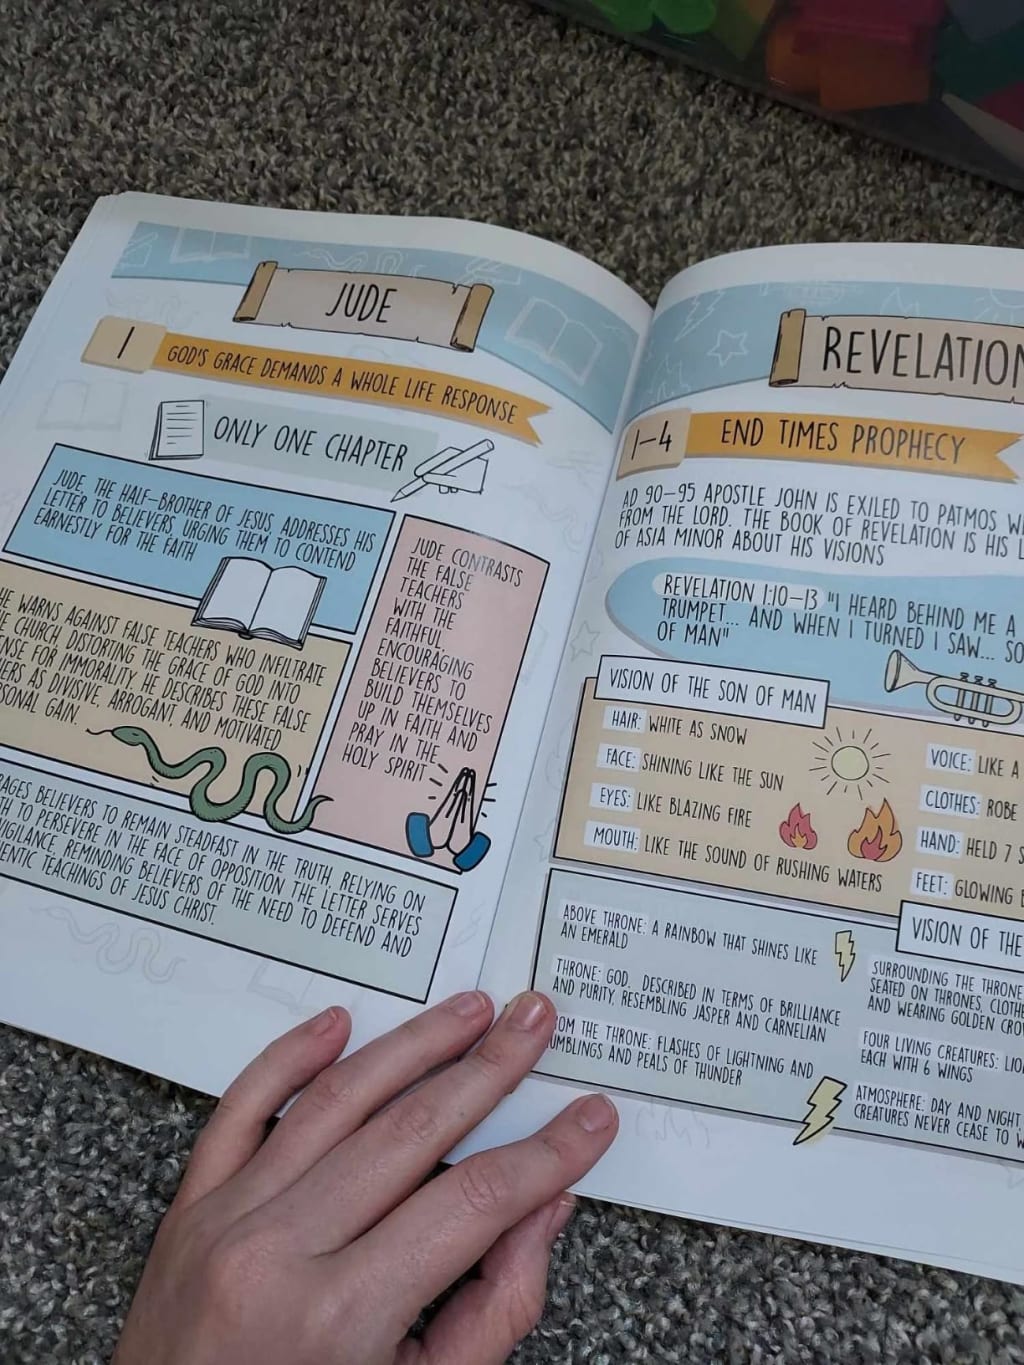 JUDE
1
GOD'S GRACE DEMANDS A WHOLE LIFE RESPONSE
ONLY ONE CHAPTER
JUDE, THE HALF-BROTHER OF JESUS, ADDRESSES HIS
LETTER TO BELIEVERS, URGING THEM TO CONTEND
EARNESTLY FOR THE FAITH
WARNS AGAINST FALSE TEACHERS WHO INFILTRATE
CHURCH, DISTORTING THE GRACE OF GOD INTO
FOR IMMORALITY. HE DESCRIBES THESE FALSE
AS DIVISIVE, ARROGANT, AND MOTIVATED
GAIN.
JUDE CONTRASTS
THE FALSE
TEACHERS
WITH THE
FAITHFUL,
ENCOURAGING
BELIEVERS TO
BUILD THEMSELVES
UP IN FAITH AND
PRAY IN THE
HOLY SPIRIT
BELIEVERS TO REMAIN STEADFAST IN THE TRUTH, RELYING ON
TO PERSEVERE IN THE FACE OF OPPOSITION. THE LETTER SERVES
VIGILANCE, REMINDING BELIEVERS OF THE NEED TO DEFEND AND
TEACHINGS OF JESUS CHRIST.
REVELATION
1-4
END TIMES PROPHECY
AD 90-95 APOSTLE JOHN IS EXILED TO PATMOS
FROM THE LORD. THE BOOK OF REVELATION IS HIS
OF ASIA MINOR ABOUT HIS VISIONS
REVELATION 1:10-13 "I HEARD BEHIND ME A
TRUMPET... AND WHEN I TURNED I SAW...
OF MAN"
VISION OF THE SON OF MAN
HAIR: WHITE AS SNOW
FACE: SHINING LIKE THE SUN
EYES: LIKE BLAZING FIRE
MOUTH: LIKE THE SOUND OF RUSHING WATERS
VOICE: LIKE A
CLOTHES: ROBE
HAND: HELD 7
FEET: GLOWING
VISION OF THE
ABOVE THRONE: A RAINBOW THAT SHINES LIKE
AN EMERALD
THRONE: GOD, DESCRIBED IN TERMS OF BRILLIANCE
AND PURITY, RESEMBLING JASPER AND CARNELIAN
THE THRONE: FLASHES OF LIGHTNING AND
AND PEALS OF THUNDER
SURROUNDING THE THRONE
SEATED ON THRONES,
AND WEARING GOLDEN
FOUR LIVING CREATURES:
EACH WITH 6 WINGS
ATMOSPHERE: DAY AND NIGHT,
CREATURES NEVER CEASE TO